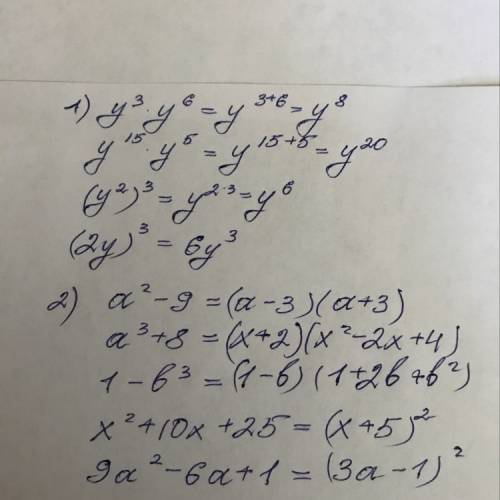 1) y³·y⁶=y³⁺⁶=y⁸
y¹⁵·y⁵=y¹⁵⁺⁵=y²⁰
(y²)³=y²·³=y⁶
(2y)³=6y³
2) a²-9=(a-3)(a+3)
a³+8=(x+2)(x²-2x+4)
1-b³=(1-b)(1+2b+b²)
x²+10x+25=(x+5)²
9a²-6a+1=(3a-1)²